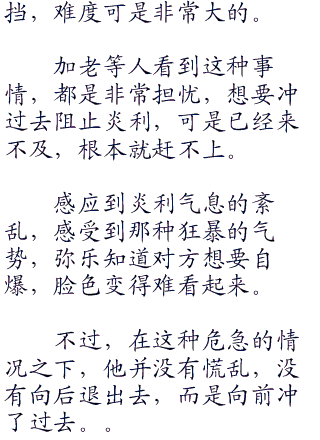 挡，难度可是非常大的。
加老等人看到这种事
情，都是非常担忧，想要冲
过去阻止炎利，可是已经来
不及，根本就赶不上。
感应到炎利气息的紊
乱，感受到那种狂暴的气
势，弥乐知道对方想要自
爆，脸色变得难看起来。
不过，在这种危急的情
况之下，他并没有慌乱，没
有向后退出去，而是向前冲
了过去。。